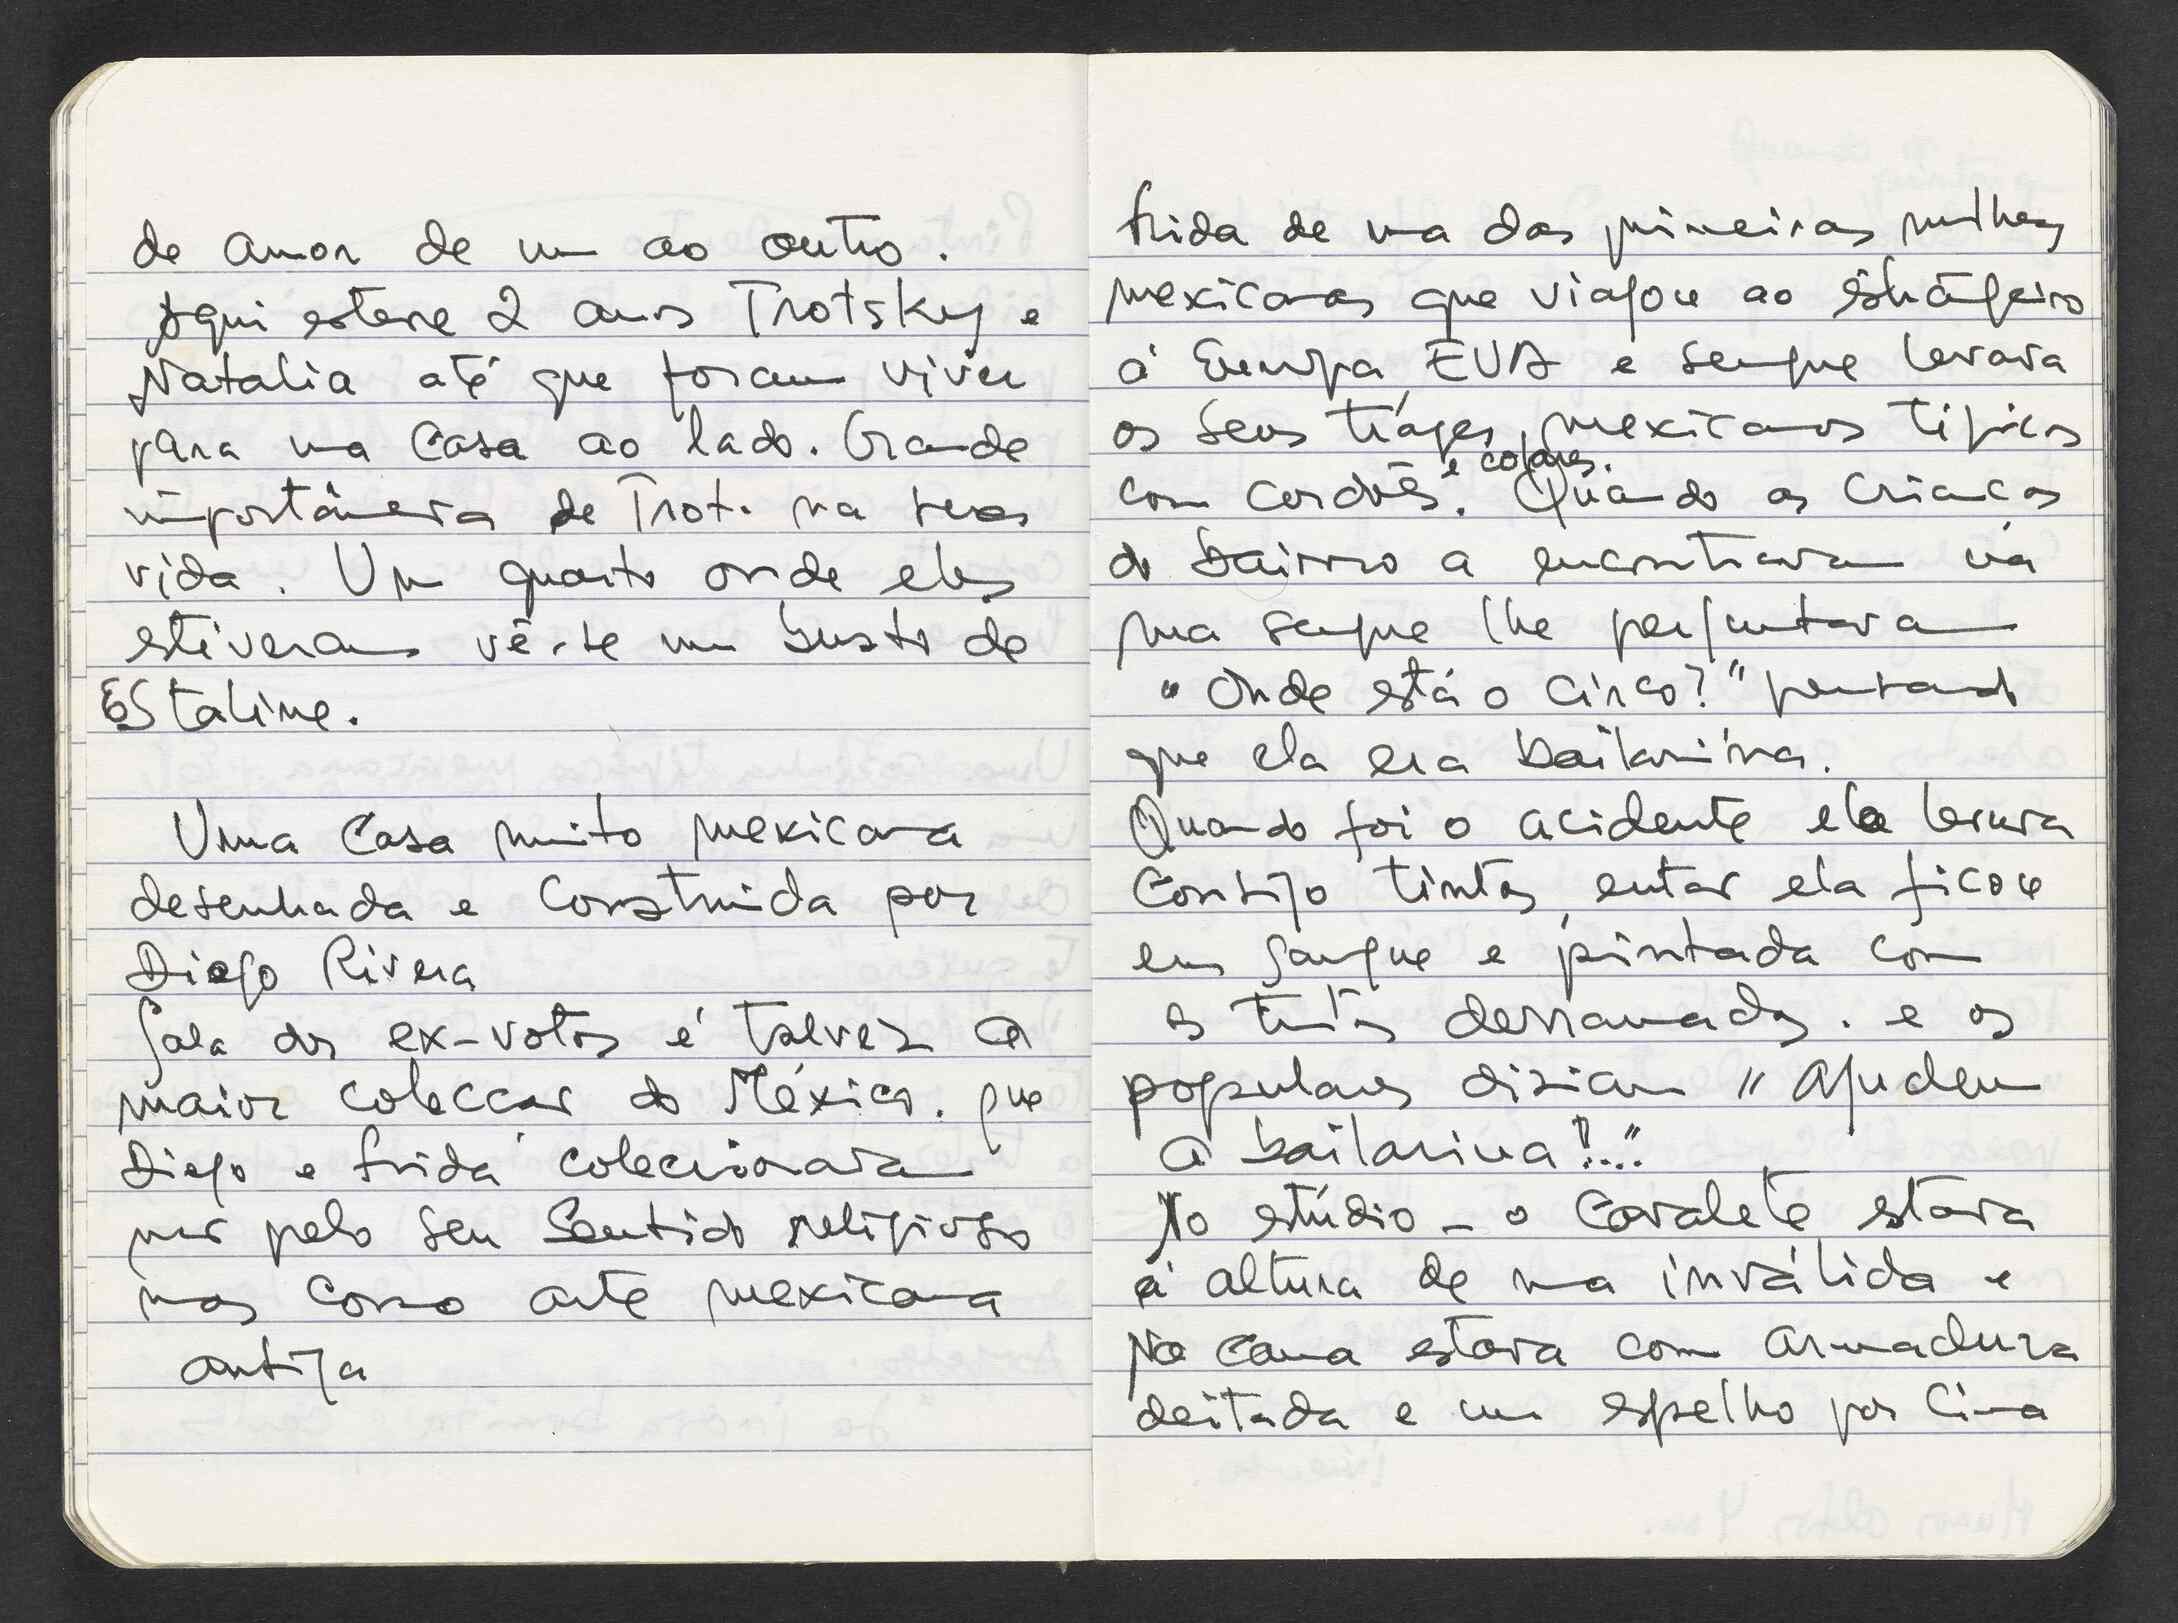 de amor de um ao outro.
Aqui esteve 2 anos Trotsky e
Natalia até que foram viver
para uma casa ao lado. Grande
importância de Trot. na suas
vida. Um quarto onde eles
estiveram vê-se um busto de
EStaline.
Uma casa muito mexicana
desenhada e construida por
Diego Rivera
Sala dos ex-votos é talvez a
maior colecção do México. que
Diego e Frida colecionaram
não pelo seu sentido religioso
mas como arte mexicana
antiga
Frida de uma das primeiras mulheres
mexicanas que viajou ao estrângeiro
à Europa, EUA e sempre levava
os seus trájes, mexicanos tipicos
e colares.
com cordões. Quando as crianças
do bairro a encontravam na
rua sempre lhe perguntavam
"Onde está o circo?" pensando
que ela era bailarina.
Quando foi o acidente ela levava
consigo tintas, então ela ficou
em sangue e pintada com
as tintas derramadas. e os
populares diziam "ajudem
a bailarina!..."
No estúdio - o cavalete estava
à altura de uma inválida e
Na cama estava com armadura
deitada e um espelho por cima